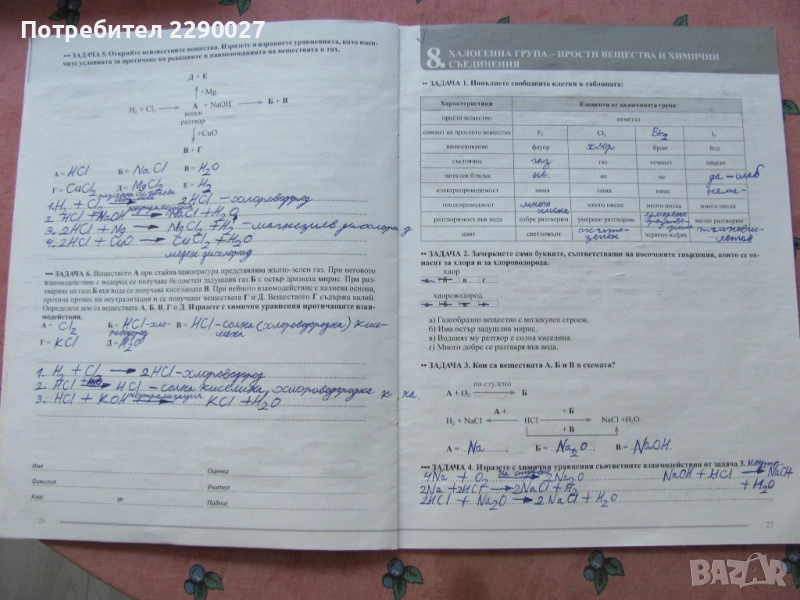 Потребител 2290027
••• ЗАДАЧА 5. Открийте неизвестните вещества. Изразете и изравнете уравненията, като
чите условията за протичане на реакциите и наименованията на веществата в тях.
Д + Е
+Mg
H₂ + Cl₂ → А + NaOH → Б + В
воден
разтвор
+CuO
В + Г
А = HCl Б = NaCl В = H₂O
Г = CuCl₂ Д = MgCl₂ Е = H₂
1. H₂ + Cl₂ → 2HCl - хлороводород
2. HCl + NaOH → NaCl + H₂O
3. 2HCl + Mg → MgCl₂ + H₂ - магнезиев дихлорид
4. 2HCl + CuO → CuCl₂ + H₂O
меден дихлорид
••• ЗАДАЧА 6. Веществото А при стайна температура представлява жълто-зелен газ. При неговото
взаимодействие с водород се получава безцветен задушлив газ Б с остър дразнещ мирис. При раз-
тваряне на газ Б във вода се получава киселината В. При нейното взаимодействие с калиева основа,
протича процес на неутрализация и се получават веществата Г и Д. Веществото Г съдържа калий.
Определете кои са веществата А, Б, В, Г и Д. Изразете с химични уравнения протичащите взаи-
модействия.
А = Cl₂ Б = HCl-хло- В = HCl-солна (хлороводородна) кисе-
роводород лина
Г = KCl Д = H₂O
1. H₂ + Cl₂ → 2HCl - хлороводород
2. HCl → HCl - солна киселина, хлороводородна к-на
3. HCl + KOH неутрализация → KCl + H₂O
Име
Фамилия
Клас №
Оценка
Учител
Подпис
26
8. ХАЛОГЕННА ГРУПА – ПРОСТИ ВЕЩЕСТВА И ХИМИЧНИ
СЪЕДИНЕНИЯ
•• ЗАДАЧА 1. Попълнете свободните клетки в таблицата:
Характеристики Елементи от халогенната група
просто вещество неметал
символ на простото вещество F₂ Cl₂ Br₂ I₂
наименование флуор хлор бром йод
състояние газ газ течност твърдо
метален блясък не не не да - слаб
електропроводимост няма няма няма няма
топлопроводност много ниска много ниска много ниска много ниска
разтворимост във вода добре разтворим умерено разтворим умерено малко разтворим
цвят светложълт жълто-зелен червено-кафяв
•• ЗАДАЧА 2. Зачеркнете само буквите, съответстващи на посочените твърдения, които се от-
насят за хлора и за хлороводорода.
хлор
а б в г
хлороводород
а б в г
а) Газообразно вещество с молекулен строеж.
б) Има остър задушлив мирис.
в) Водният му разтвор е солна киселина.
г) Много добре се разтваря във вода.
•• ЗАДАЧА 3. Кои са веществата А, Б и В в схемата?
на студено
А + O₂ → Б
А + + Б
H₂ + NaCl ← HCl → NaCl + H₂O
+ В
А = Na Б = Na₂O В = NaOH
••• ЗАДАЧА 4. Изразете с химични уравнения съответните взаимодействия от задача 3.
4Na + O₂ на студено → 2Na₂O NaOH + HCl → NaCl
2Na + 2HCl → 2NaCl + H₂ + H₂O
2HCl + Na₂O → 2NaCl + H₂O
27
BAZAR